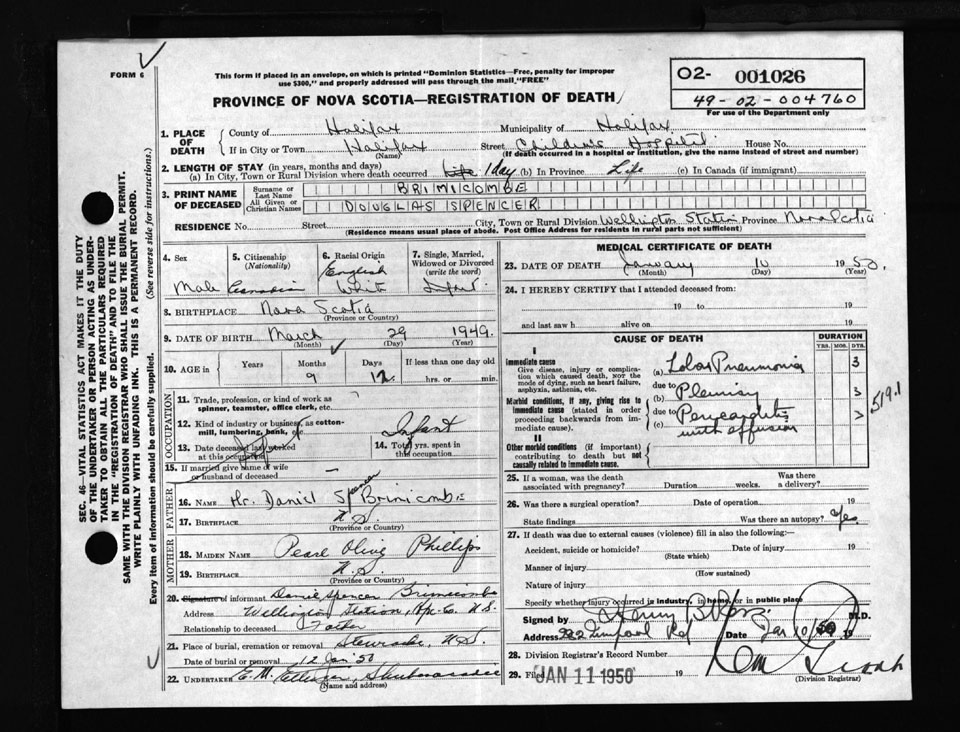 FORM 6
This form if placed in an envelope, on which is printed "Dominion Statistics—Free, penalty for improper
use $300," and properly addressed will pass through the mail, "FREE"
PROVINCE OF NOVA SCOTIA—REGISTRATION OF DEATH
02- 001026
49-02-004760
For use of the Department only
SEC. 46—VITAL STATISTICS ACT MAKES IT THE DUTY
OF THE UNDERTAKER OR PERSON ACTING AS UNDER-
TAKER TO OBTAIN ALL THE PARTICULARS REQUIRED
IN THE "REGISTRATION OF DEATH" AND TO FILE THE
SAME WITH THE DIVISION REGISTRAR WHO SHALL ISSUE THE BURIAL PERMIT.
WRITE PLAINLY WITH UNFADING INK. THIS IS A PERMANENT RECORD.
Every item of information should be carefully supplied. (See reverse side for instructions.)
1. PLACE OF DEATH
County of Halifax Municipality of Halifax
If in City or Town Halifax Street Children's Hospital House No.
(Name) (If death occurred in a hospital or institution, give the name instead of street and number)
2. LENGTH OF STAY (in years, months and days)
(a) In City, Town or Rural Division where death occurred Life 1 day (b) In Province Life (c) In Canada (if immigrant)
3. PRINT NAME OF DECEASED
Surname or Last Name BRIMICOMBE
All Given or Christian Names DOUGLAS SPENCER
RESIDENCE No. Street City, Town or Rural Division Wellington Station Province Nova Scotia
(Residence means usual place of abode. Post Office Address for residents in rural parts not sufficient)
4. Sex Male
5. Citizenship (Nationality) Canadian
6. Racial Origin English White
7. Single, Married, Widowed or Divorced (write the word) Infant
8. BIRTHPLACE Nova Scotia
(Province or Country)
9. DATE OF BIRTH March 29 1949
(Month) (Day) (Year)
10. AGE in Years Months 9 Days 12 If less than one day old
hrs. or min.
OCCUPATION
11. Trade, profession, or kind of work as
spinner, teamster, office clerk, etc.
12. Kind of industry or business, as cotton-
mill, lumbering, bank, etc. Infant
13. Date deceased last worked
at this occupation
14. Total yrs. spent
in this occupation
15. If married give name of wife
or husband of deceased —
FATHER
16. NAME Mr. Daniel Spencer Brimicombe
17. BIRTHPLACE N.S.
(Province or Country)
MOTHER
18. MAIDEN NAME Pearl Olive Phillips
19. BIRTHPLACE N.S.
(Province or Country)
20. Signature of informant Daniel Spencer Brimicombe
Address Wellington Station, Hfx. Co. N.S.
Relationship to deceased Father
21. Place of burial, cremation or removal N.S.
Date of burial or removal 12 Jan 50
22. UNDERTAKER E. M. Shubenacadie
(Name and address)
MEDICAL CERTIFICATE OF DEATH
23. DATE OF DEATH January 10 1950.
(Month) (Day) (Year)
24. I HEREBY CERTIFY that I attended deceased from:
19 to 19
and last saw h alive on 19
CAUSE OF DEATH
DURATION
YRS. MOS. DYS.
I
Immediate cause
Give disease, injury or complica-
tion which caused death, not the
mode of dying, such as heart failure,
asphyxia, asthenia, etc.
(a) Lobar Pneumonia 3
due to
Morbid conditions, if any, giving rise to
immediate cause (stated in order
proceeding backwards from im-
mediate cause).
(b) Pleurisy 3
due to
(c) Pericarditis with effusion 3
519.1
II
Other morbid conditions (if important)
contributing to death but not
causally related to immediate cause.
25. If a woman, was the death
associated with pregnancy? Duration weeks. Was there
a delivery?
26. Was there a surgical operation? Date of operation 19
State findings Was there an autopsy? Yes
27. If death was due to external causes (violence) fill in also the following:—
Accident, suicide or homicide? Date of injury 19
(State which)
Manner of injury
(How sustained)
Nature of injury
Specify whether injury occurred in industry, in home, or in public place
Signed by M.D.
Address Date Jan 50 19
28. Division Registrar's Record Number
29. Filed JAN 11 1950 19
(Division Registrar)